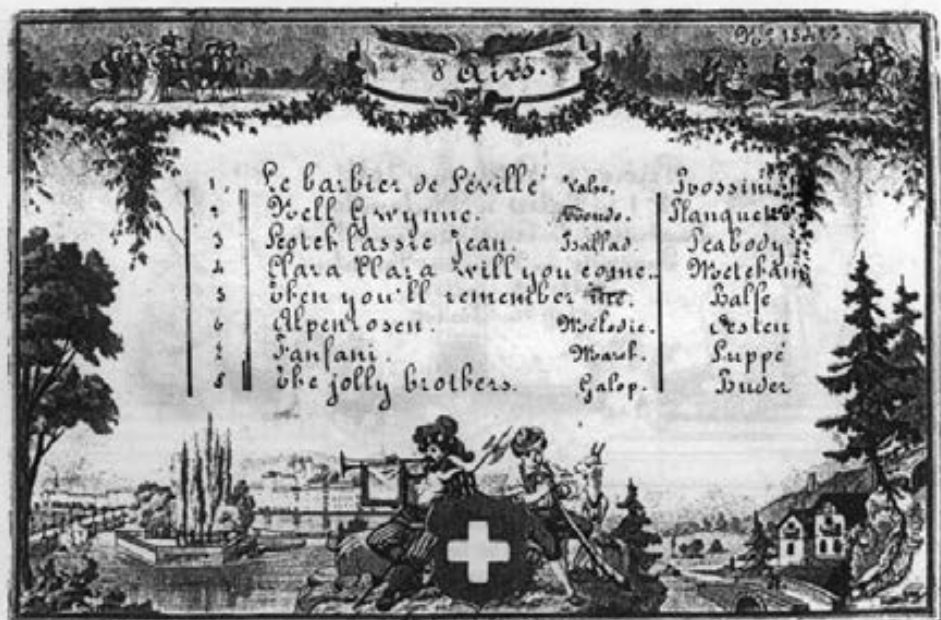 8 Airs.
1. Le barbier de Séville Valse. Rossini
2 Nell Gwynne. Rondo. Planquette
3 Scotch lassie Jean. Ballad. Peabody
4 Clara Clara will you come..
5 Then you'll remember me. Balfe
6 Alpenrosen. Mélodie. Oesten
7 Fanfani. March. Suppé
8 The jolly brothers. Galop. Buder